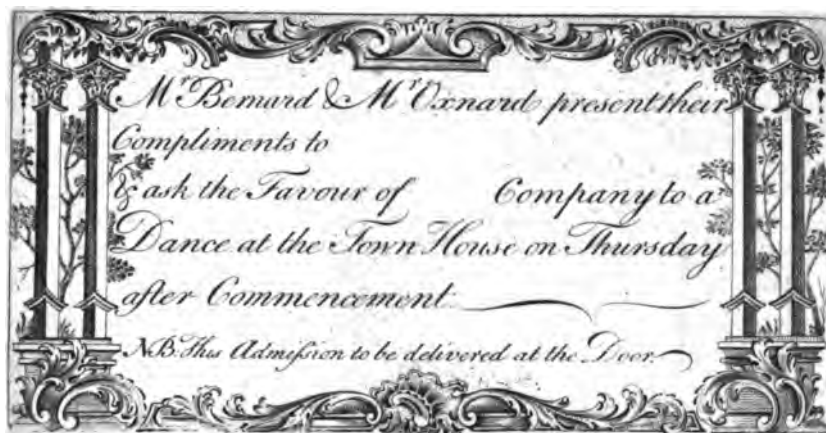 Mr Bernard & Mr Oxnard present their
Compliments to
& ask the Favour of Company to a
Dance at the Town House on Thursday
after Commencement
NB. This Admiſsion to be delivered at the Door.